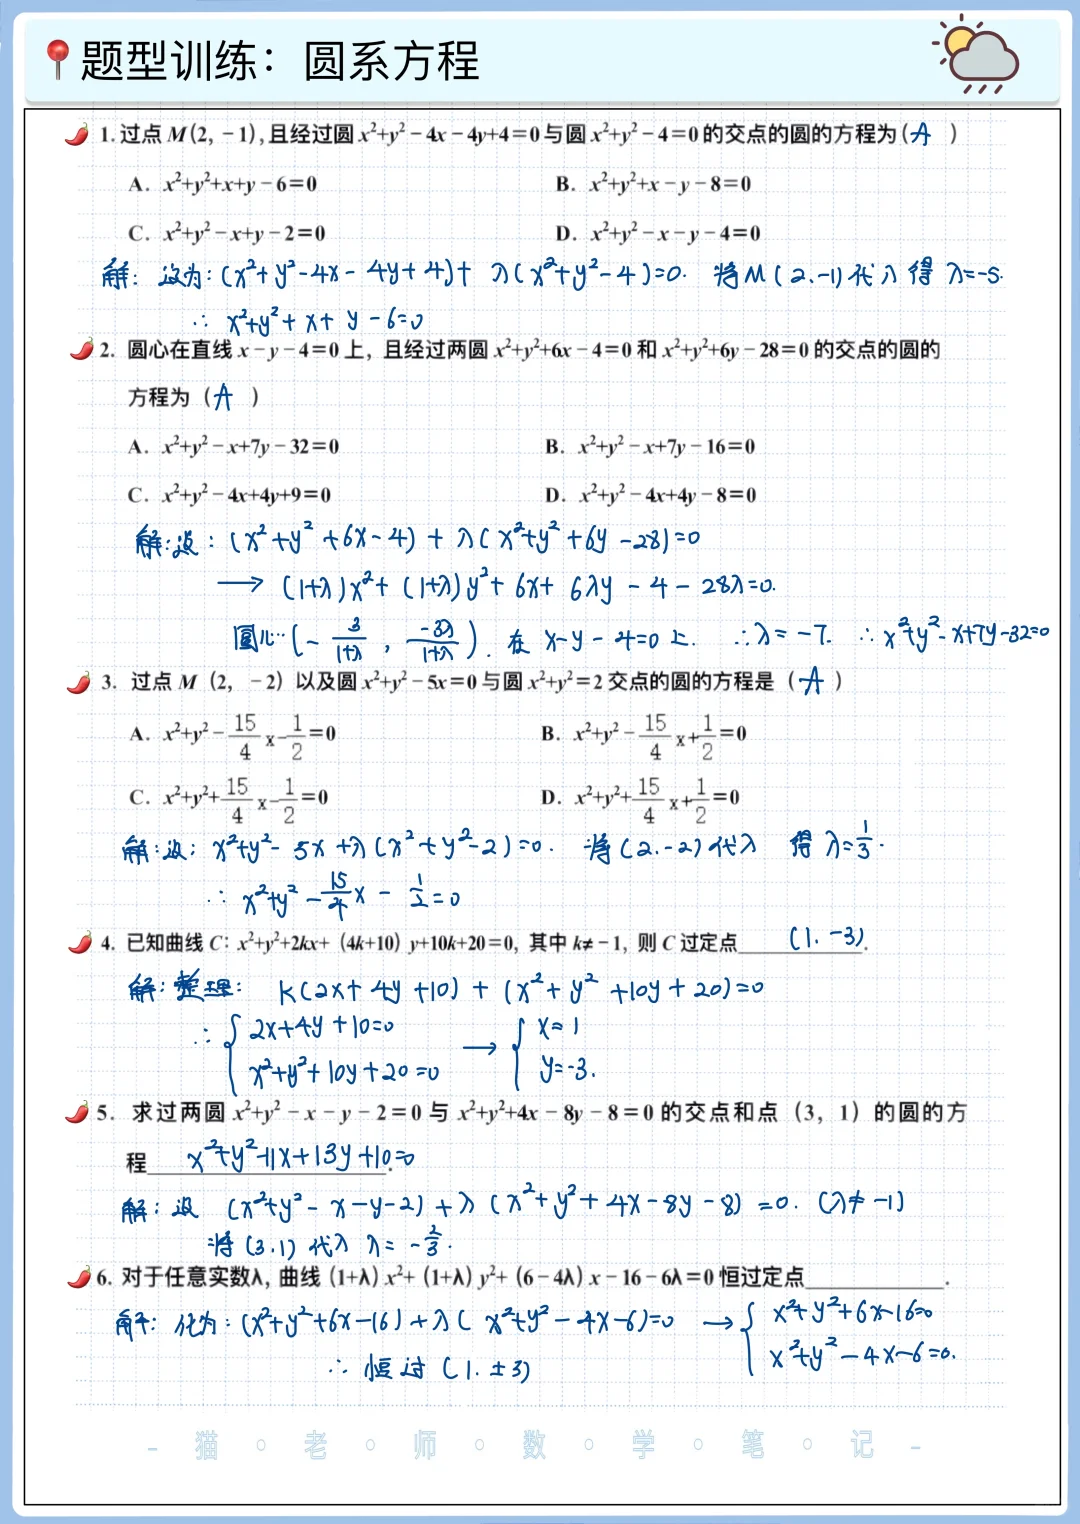 题型训练：圆系方程
1. 过点 M(2, -1), 且经过圆 x²+y²-4x-4y+4=0 与圆 x²+y²-4=0 的交点的圆的方程为 ( A )
A. x²+y²+x+y-6=0 B. x²+y²+x-y-8=0
C. x²+y²-x+y-2=0 D. x²+y²-x-y-4=0
解：设为：(x²+y²-4x-4y+4)+λ(x²+y²-4)=0. 将M(2,-1)代入得 λ=-5.
∴ x²+y²+x+y-6=0
2. 圆心在直线 x-y-4=0 上, 且经过两圆 x²+y²+6x-4=0 和 x²+y²+6y-28=0 的交点的圆的
方程为 ( A )
A. x²+y²-x+7y-32=0 B. x²+y²-x+7y-16=0
C. x²+y²-4x+4y+9=0 D. x²+y²-4x+4y-8=0
解：设：(x²+y²+6x-4)+λ(x²+y²+6y-28)=0
→ (1+λ)x²+(1+λ)y²+6x+6λy-4-28λ=0.
圆心(-3/(1+λ), -3λ/(1+λ)). 在 x-y-4=0 上. ∴λ=-7. ∴x²+y²-x+7y-32=0
3. 过点 M (2, -2) 以及圆 x²+y²-5x=0 与圆 x²+y²=2 交点的圆的方程是 ( A )
A. x²+y²-15/4 x-1/2=0 B. x²+y²-15/4 x+1/2=0
C. x²+y²+15/4 x-1/2=0 D. x²+y²+15/4 x+1/2=0
解：设：x²+y²-5x+λ(x²+y²-2)=0. 将(2.-2)代入 得 λ=1/3.
∴ x²+y²-15/4 x-1/2=0
4. 已知曲线 C: x²+y²+2kx+(4k+10)y+10k+20=0, 其中 k≠-1, 则 C 过定点 (1.-3).
解：整理： k(2x+4y+10)+(x²+y²+10y+20)=0
∴ { 2x+4y+10=0 → { x=1
x²+y²+10y+20=0 y=-3.
5. 求过两圆 x²+y²-x-y-2=0 与 x²+y²+4x-8y-8=0 的交点和点 (3, 1) 的圆的方
程 x²+y²-11x+13y+10=0.
解：设 (x²+y²-x-y-2)+λ(x²+y²+4x-8y-8)=0. (λ≠-1)
将(3.1)代入 λ=-2/3.
6. 对于任意实数λ, 曲线 (1+λ)x²+(1+λ)y²+(6-4λ)x-16-6λ=0 恒过定点____.
解：化为：(x²+y²+6x-16)+λ(x²+y²-4x-6)=0 → { x²+y²+6x-16=0
x²+y²-4x-6=0.
∴ 恒过(1.±3)
- 猫 · 老 · 师 · 数 · 学 · 笔 · 记 -